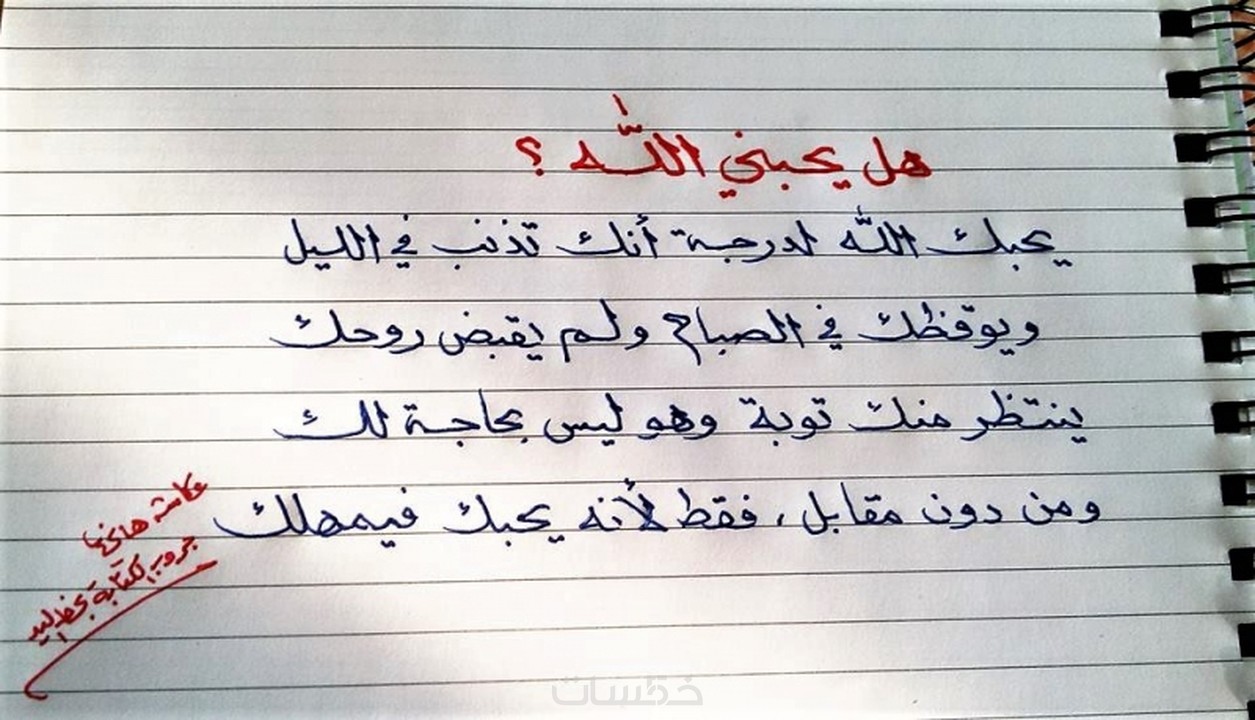 هل يحبني الله ؟
يحبك الله لدرجة أنك تذنب في الليل
ويوقظك في الصباح ولم يقبض روحك
ينتظر منك توبة وهو ليس بحاجة لك
ومن دون مقابل، فقط لأنه يحبك فيمهلك
جروب الكتابة بخط اليد
خمسات